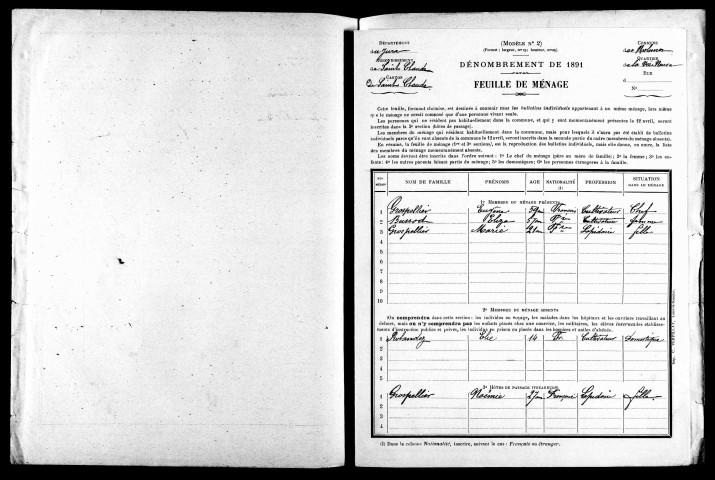 DÉPARTEMENT
du Jura
ARRONDISSEMENT
de Saint-Claude
CANTON
de Saint-Claude
(MODÈLE N° 2)
DÉNOMBREMENT DE 1891
FEUILLE DE MÉNAGE
COMMUNE
de Molunes
QUARTIER
RUE
d
N°
Cette feuille, formant chemise, est destinée à contenir tous les bulletins individuels appartenant à un même ménage, lors même
que le ménage ne serait composé que d'une personne vivant seule.
Les personnes qui ne résident pas habituellement dans la commune, et qui y sont momentanément présentes le 12 avril, seront
inscrites dans la 3e section (hôtes de passage).
Les membres du ménage qui résident habituellement dans la commune, mais pour lesquels il n'aura pas été établi de bulletins
individuels parce qu'ils sont absents de la commune le 12 avril, seront inscrits dans la seconde partie du cadre (membres du ménage absents).
En résumé, la feuille de ménage (1re et 3e sections), est la reproduction des bulletins individuels, mais elle donne, en outre, la liste
des membres du ménage momentanément absents.
Les noms devront être inscrits dans l'ordre suivant : 1° Le chef de ménage (père ou mère de famille); 2° la femme; 3° les en-
fants; 4° les autres parents faisant partie du ménage; 5° les domestiques; 6° les personnes étrangères à la famille.
NU-MÉROS NOM DE FAMILLE PRÉNOMS AGE NATIONALITÉ (1) PROFESSION SITUATION DANS LE MÉNAGE
1° MEMBRES DU MÉNAGE PRÉSENTS
1 Grospellier Eugène 59 Français Cultivateur Chef
2 Burrod Eliza Cultivateur femme
3 Grospellier Marie 21 Lapidaire fille
4
5
6
7
8
9
10
2° MEMBRES DU MÉNAGE ABSENTS
On comprendra dans cette section : les individus en voyage, les malades dans les hôpitaux et les ouvriers travaillant au
dehors, mais on n'y comprendra pas les enfants placés chez une nourrice, les militaires, les élèves internes des établisse-
ments d'instruction publics et privés, les individus en prison ou placés dans les hospices et asiles d'aliénés.
1 Elie 14 Fr. Cultivateur Domestique
2
3
4
5
3° HÔTES DE PASSAGE
1 Grospellier Noémie 27 Française Lapidaire fille
2
3
4
(1) Dans la colonne Nationalité, inscrire, suivant le cas : Français ou étranger.